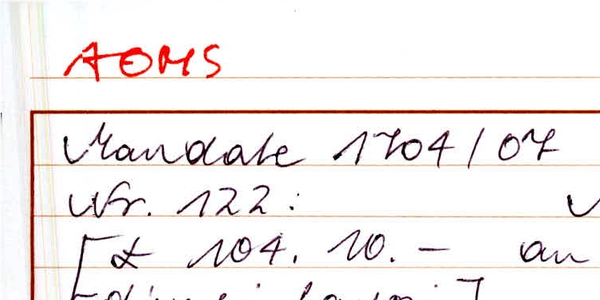 AOMS
Mandate 1704/07
Nr. 122:
[£ 104. 10. – an